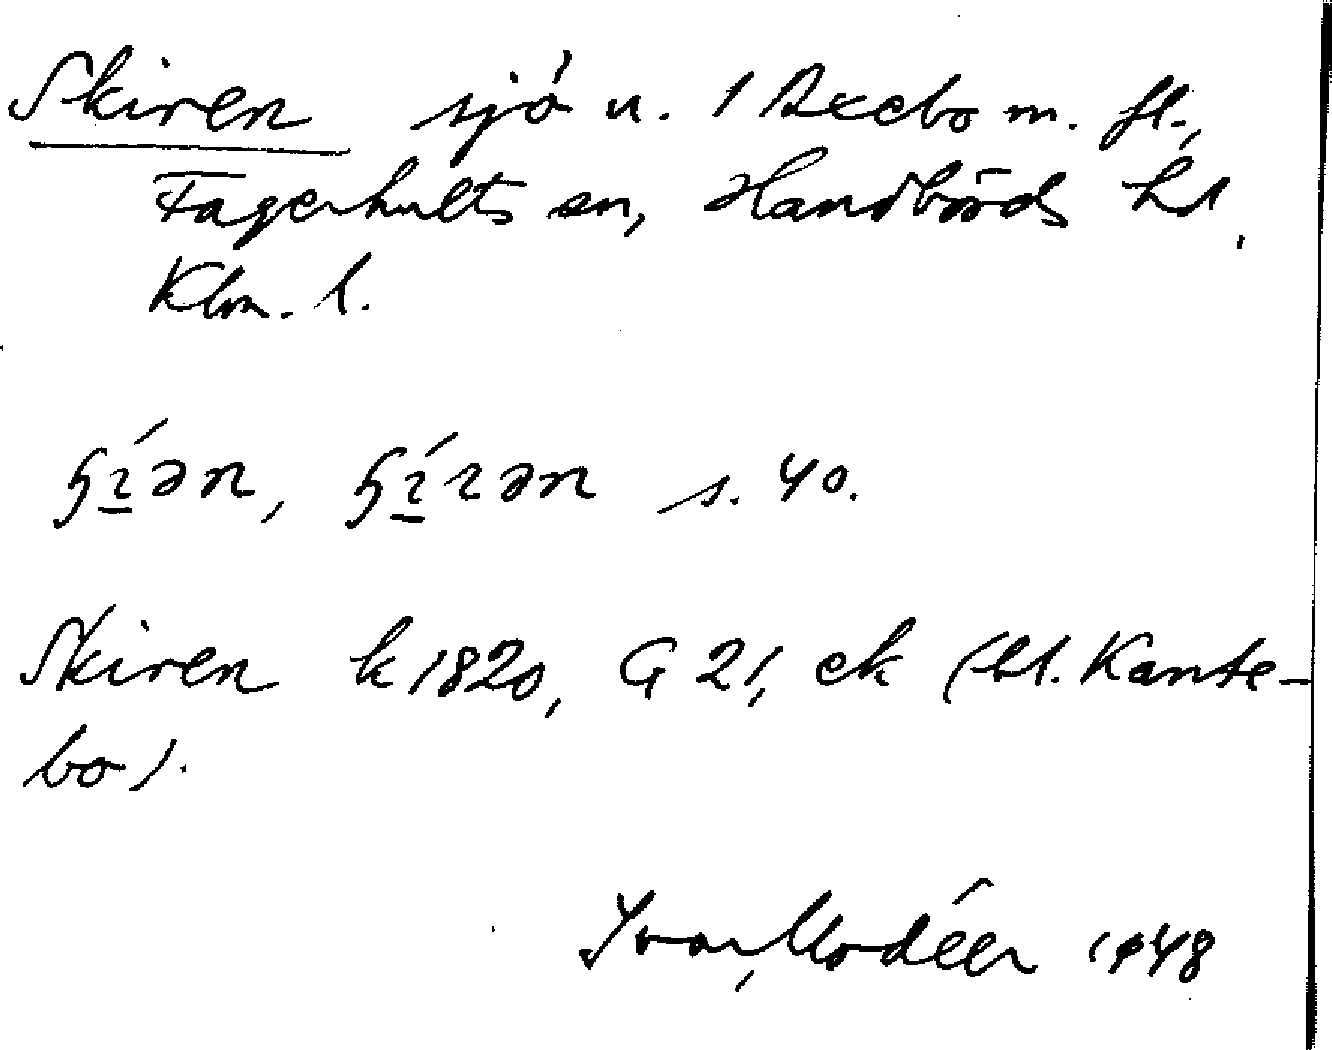 Skiren sjö u. 1 Axebo m. fl.,
Fagerhults sn, Handbörds hd,
Klm. l.
ɧí̱ən, ɧí̱rən s. 40.
Skiren k 1820, G 21, ek (bl. Kante-
bo).
Ivar Modéer 1948